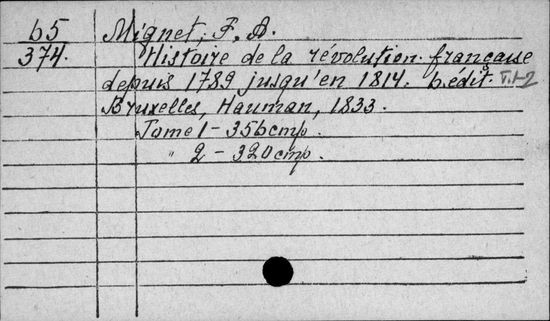 65
374.
Mignet, F. A.
Histoire de la révolution française
depuis 1789 jusqu'en 1814. 6.édit. T.1-2
Bruxelles, Hauman, 1833.
Tome 1 - 356 стр.
" 2 - 320 стр.